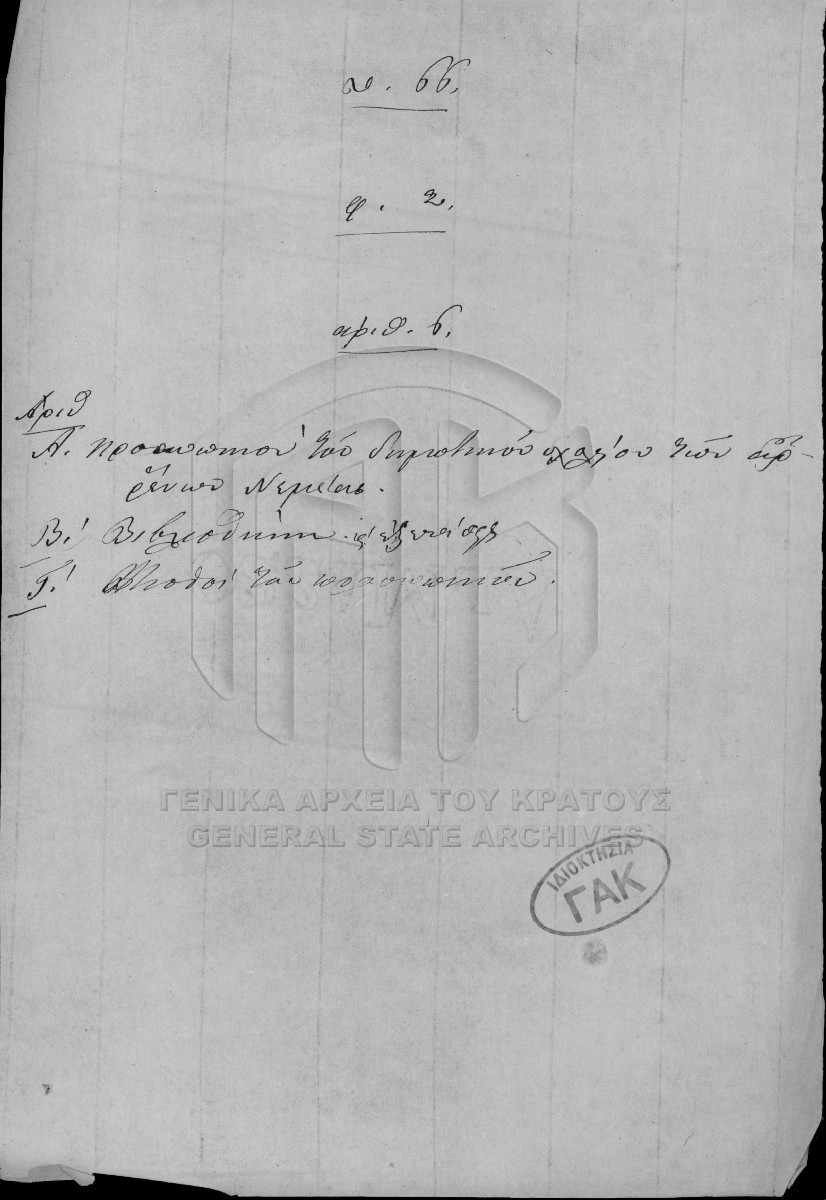 ν. 66.
φ. 2.
αριθ. 6.
Αριθ
Α. προσωπικόν τού δημοτικού σχολείου τών αρ-
ρένων Νεμέας.
Β! Βιβλιοθήκη
Γ! Μισθοί τού προσωπικού.
ΓΕΝΙΚΑ ΑΡΧΕΙΑ ΤΟΥ ΚΡΑΤΟΥΣ
GENERAL STATE ARCHIVES
ΙΔΙΟΚΤΗΣΙΑ
ΓΑΚ